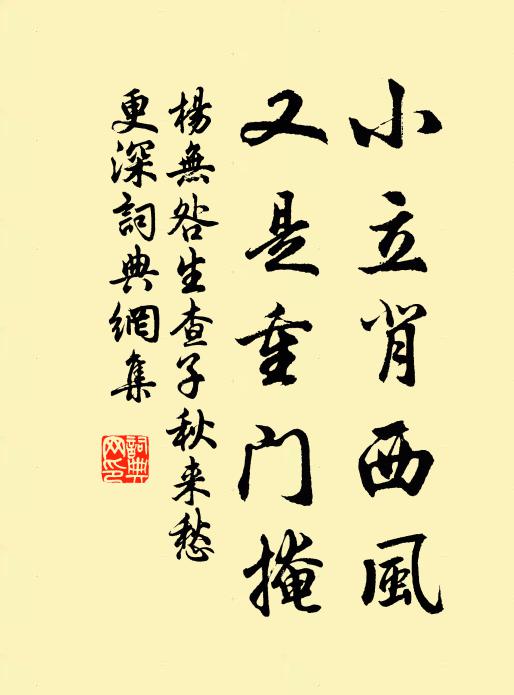 小立背西風
又是重門掩
楊無咎生查子秋来愁
更深詞典網集
詞典网印